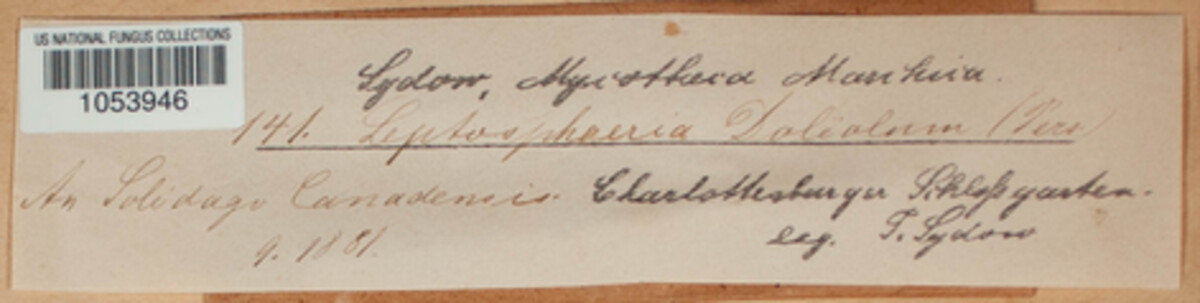 US NATIONAL FUNGUS COLLECTIONS
1053946
Sydow, Mycotheca Marchica.
141. Leptosphaeria Doliolum (Pers)
An Solidago Canadensis. Charlottenburger Schloßgarten.
9. 1881. leg. P. Sydow